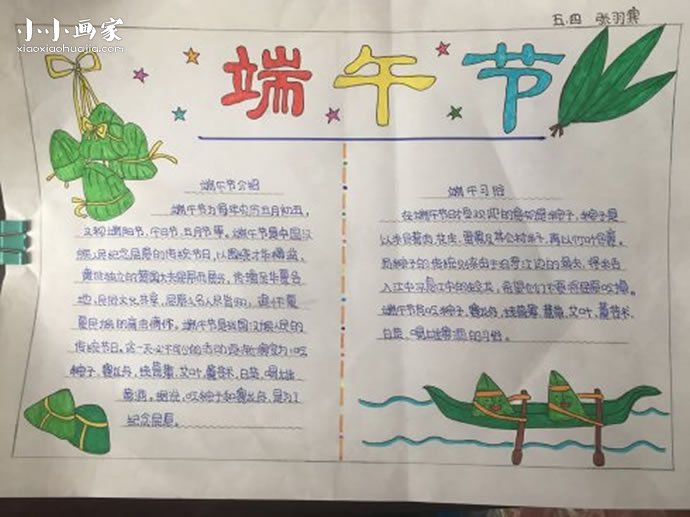 小小画家
xiaoxiaohuajia.com
五.四 张羽霁
端午节
端午节介绍
端午节为每年农历五月初五，
又称端阳节，午日节，五月节等。端午节是中国汉
族人民纪念屈原的传统节日，以围绕才华横溢、
遗世独立的楚国大夫屈原而展开，传播至华夏各
地，民俗文化共享，屈原之名人尽皆知，追怀华夏
民族的高洁情怀。端午节是我国汉族人民的
传统节日。这一天必不可少的活动逐渐演变为：吃
粽子，赛龙舟，挂菖蒲，艾叶，薰苍术，白芷，喝雄
黄酒。据说，吃粽子和赛龙舟，是为了
纪念屈原。
端午习俗
在端午节
入江中
端午节有吃粽子，赛龙舟，挂菖蒲，
白芷，喝雄黄酒的习俗。